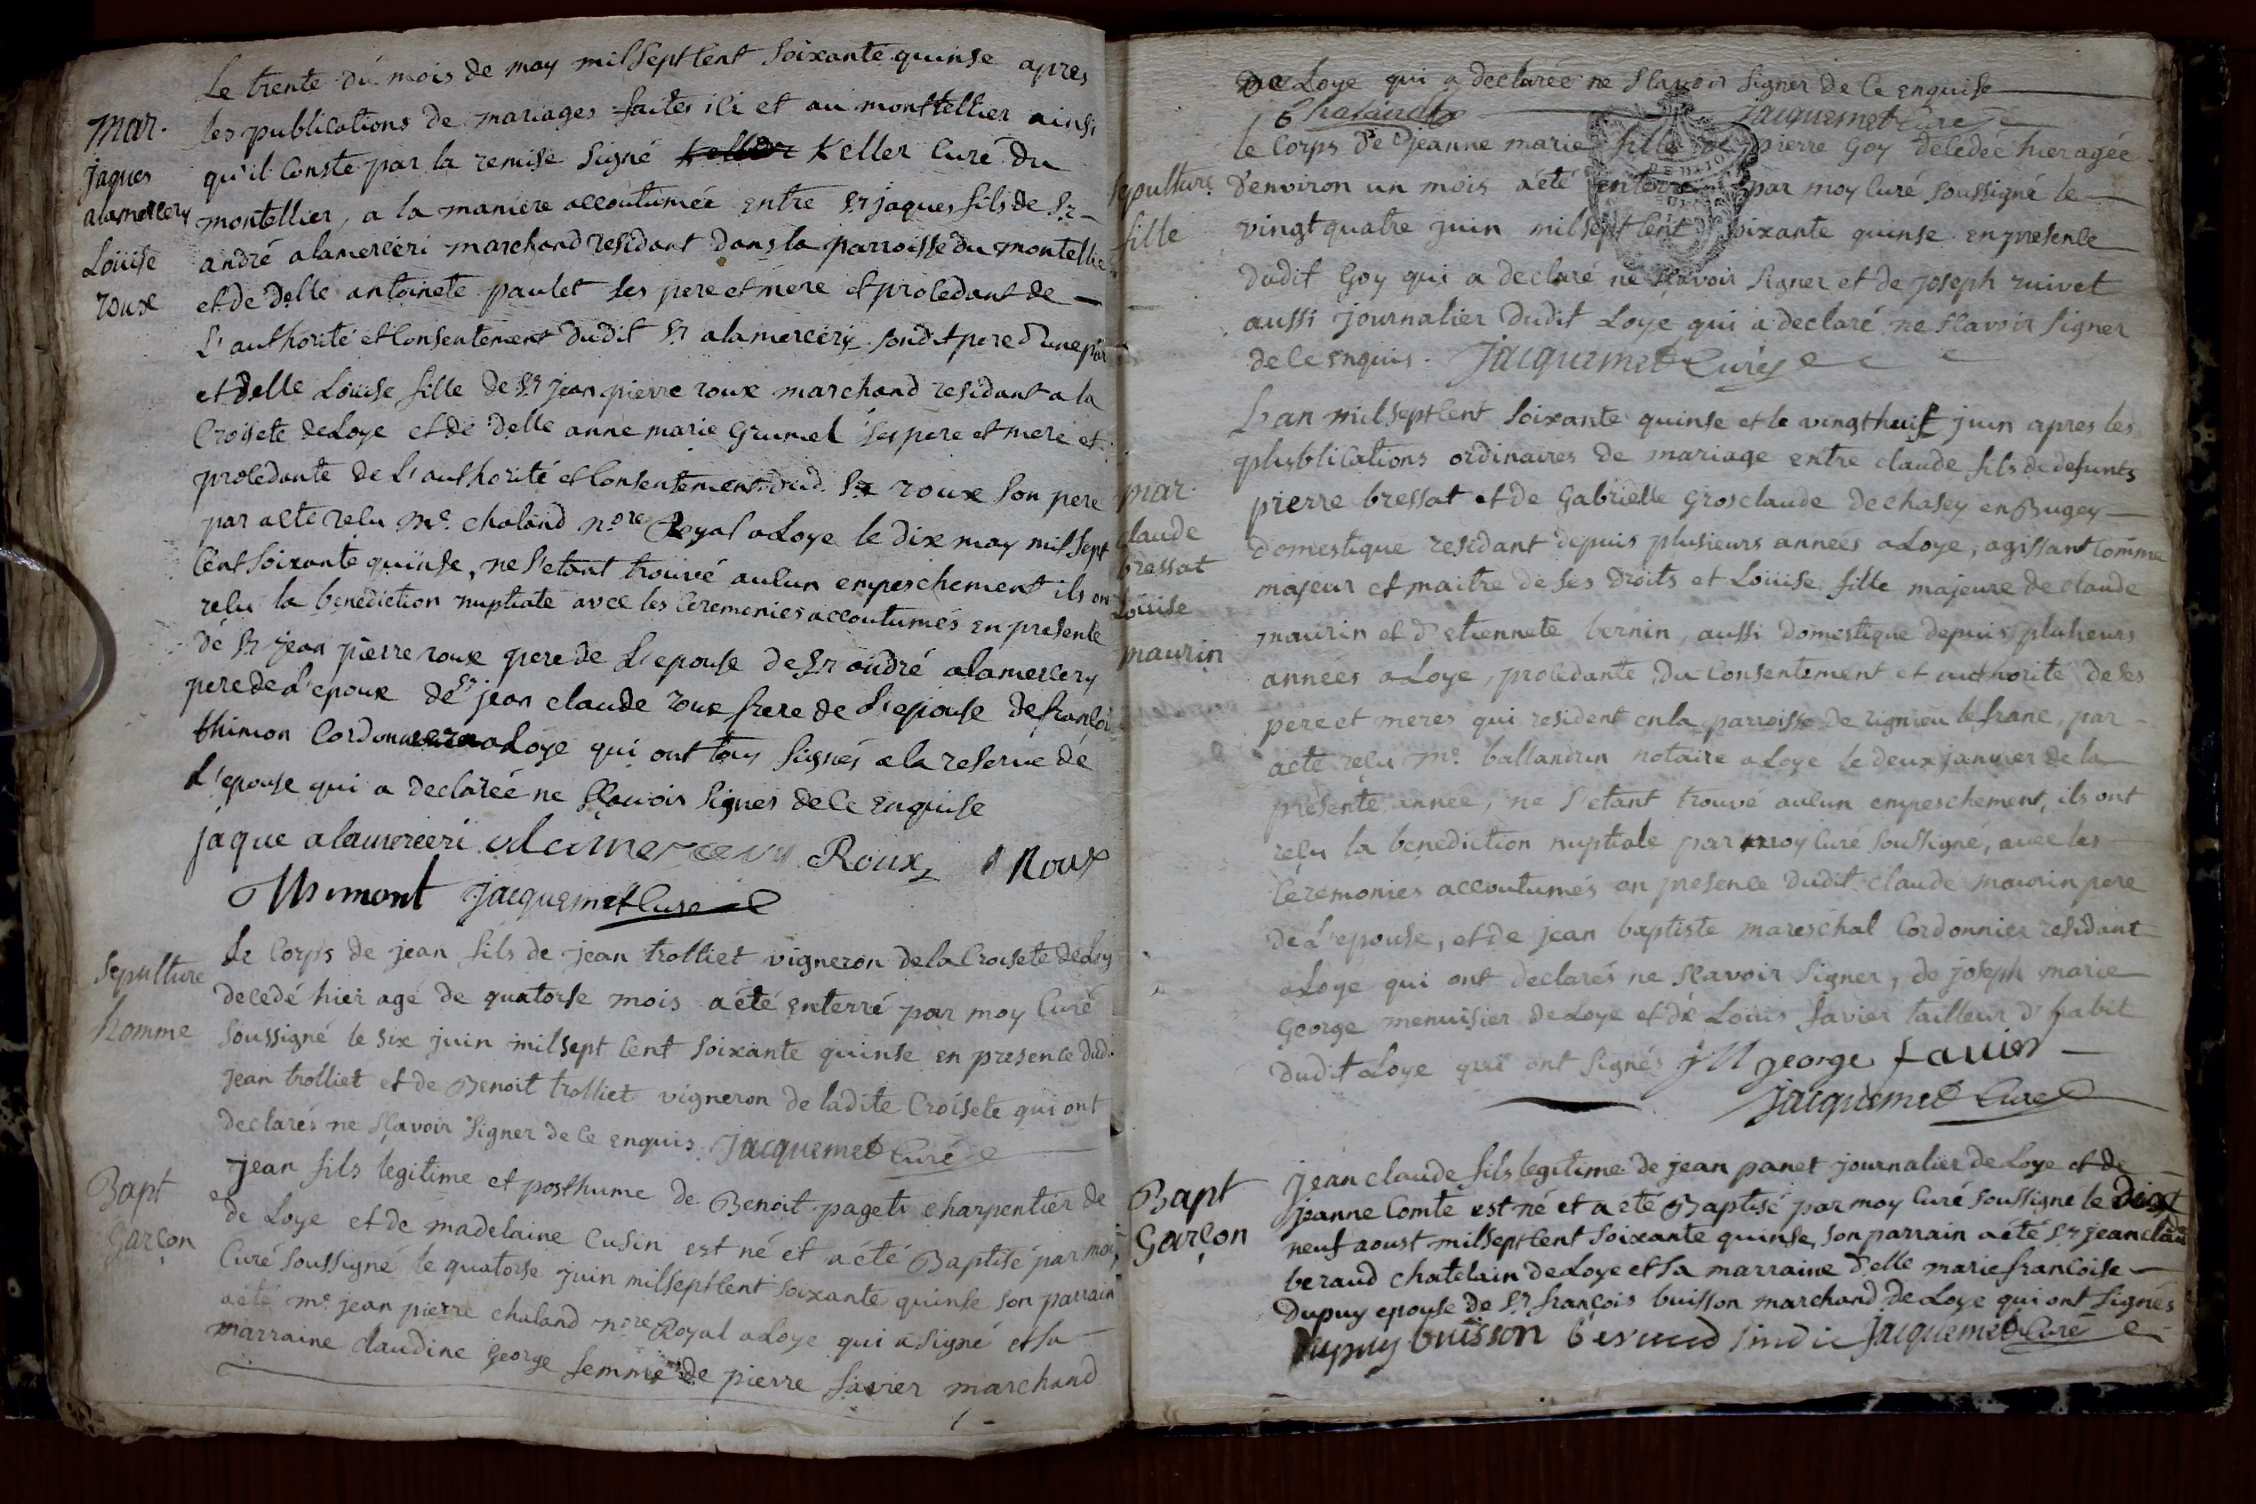 Le trente du mois de may milsept cent soixante quinse apres
mar.
les publications de mariages faites ici et au monttellier ainsi
jaques
qu'il conste par la remise signé Keller curé du
alamercery
montellier, a la maniere accoutumée entre Sr jaques fils de Sr
Loüise
andré alamercieri marchand residant dans la parroisse du montellie
roux
et de Delle antoinete paulet ses pere et mere et procedant de
L'authorité et consentement dudit Sr alamercery sondit pere d'une par
et Delle Loüise fille de Sr jean pierre roux marchand residant a la
Croisete de Loye et de Delle anne marie Grumel ses pere et mere et
procedante de L'authorité et consentement dud. Sr roux son pere
par acte reçu Me. chaland nore Royal a Loye le dix may mil sept
cent soixante quinse, ne s'etant trouvé aucun empeschement ils on
reçu la benediction nuptiale avec les ceremonies accoutumés en presence
de Sr jean pierre roux pere de L'epouse de Sr andré alamercery
pere de L'epoux de Sr jean claude roux frere de L'epouse de françoi
thimon Cordonnier a Loye qui ont tous signés a la reserve de
L'epouse qui a declareé ne sçavoir signer de ce enquise
jaque alamercieri alamercery Roux Roux
Thimont Jacquemet Curé
Sepulture
homme
Le Corps de jean fils de jean trolliet vigneron de la Croisete de Loy
decedé hier agé de quatorse mois a été enterré par moy Curé
soussigné le six juin milsept cent soixante quinse en presence dud.
jean trolliet et de Benoit trolliet vigneron de ladite Croisete qui ont
declarés ne sçavoir signer de ce enquis. Jacquemet Curé
Bapt
Garçon
jean fils legitime et posthume de Benoit pagets charpentier de
de Loye et de madelaine Cusin est né et a été Baptisé par moy
Curé soussigné le quatorse juin milsept cent soixante quinse son parrain
a été me. jean pierre chaland nore Royal a Loye qui a signé et sa
marraine claudine George femme de pierre favier marchand
De Loye qui a declareé ne sçavoir signer de ce enquise
Chaland Jacquemet Curé
Sepulture
fille
le Corps de jeanne marie fille de pierre Goy decedée hier agée
d'environ un mois a été enterré par moy Curé soussigné le
vingt quatre juin milsept cent soixante quinse en presence
dudit Goy qui a declaré ne sçavoir signer et de joseph ruivet
aussi journalier dudit Loye qui a declaré ne sçavoir signer
de ce enquis. Jacquemet Curé
mar.
claude
bressat
Loüise
maurin
L'an milsept cent soixante quinse et le vingt huit juin apres les
plusblications ordinaires de mariage entre claude fils de defunts
pierre bressat et de Gabrielle Grosclaude de chasey en Bugey
domestique residant depuis plusieurs années a Loye, agissant comme
majeur et maitre de ses droits et Loüise fille majeure de claude
maurin et d'etiennete bernin, aussi domestique depuis plusieurs
années a Loye, procedante du consentement et authorité de ses
pere et meres qui resident en la parroisse de rignieu le franc, par
acte reçu Me. ballandrin notaire a Loye le deux janvier de la
presente année, ne s'etant trouvé aucun empeschement, ils ont
reçu la benediction nuptiale par moy Curé soussigné, avec les
ceremonies accoutumés en presence dudit claude maurin pere
de L'epouse, et de jean baptiste mareschal Cordonnier residant
a Loye qui ont declarés ne sçavoir signer, de joseph marie
George menuisier de Loye et de Louis favier tailleur d'habit
dudit Loye qui ont signés JM george favier
Jacquemet Curé
Bapt
Garçon
jean claude fils legitime de jean panet journalier de Loye et de
jeanne Comte est né et a été Baptisé par moy Curé soussigné le dix
neuf aoust milsept cent soixante quinse, son parrain a été Sr jean claude
beraud chatelain de Loye et sa marraine d'elle marie françoise
Dupuy epouse de Sr françois buisson marchand de Loye qui ont signés
Dupuy buisson beraud sindic Jacquemet Curé